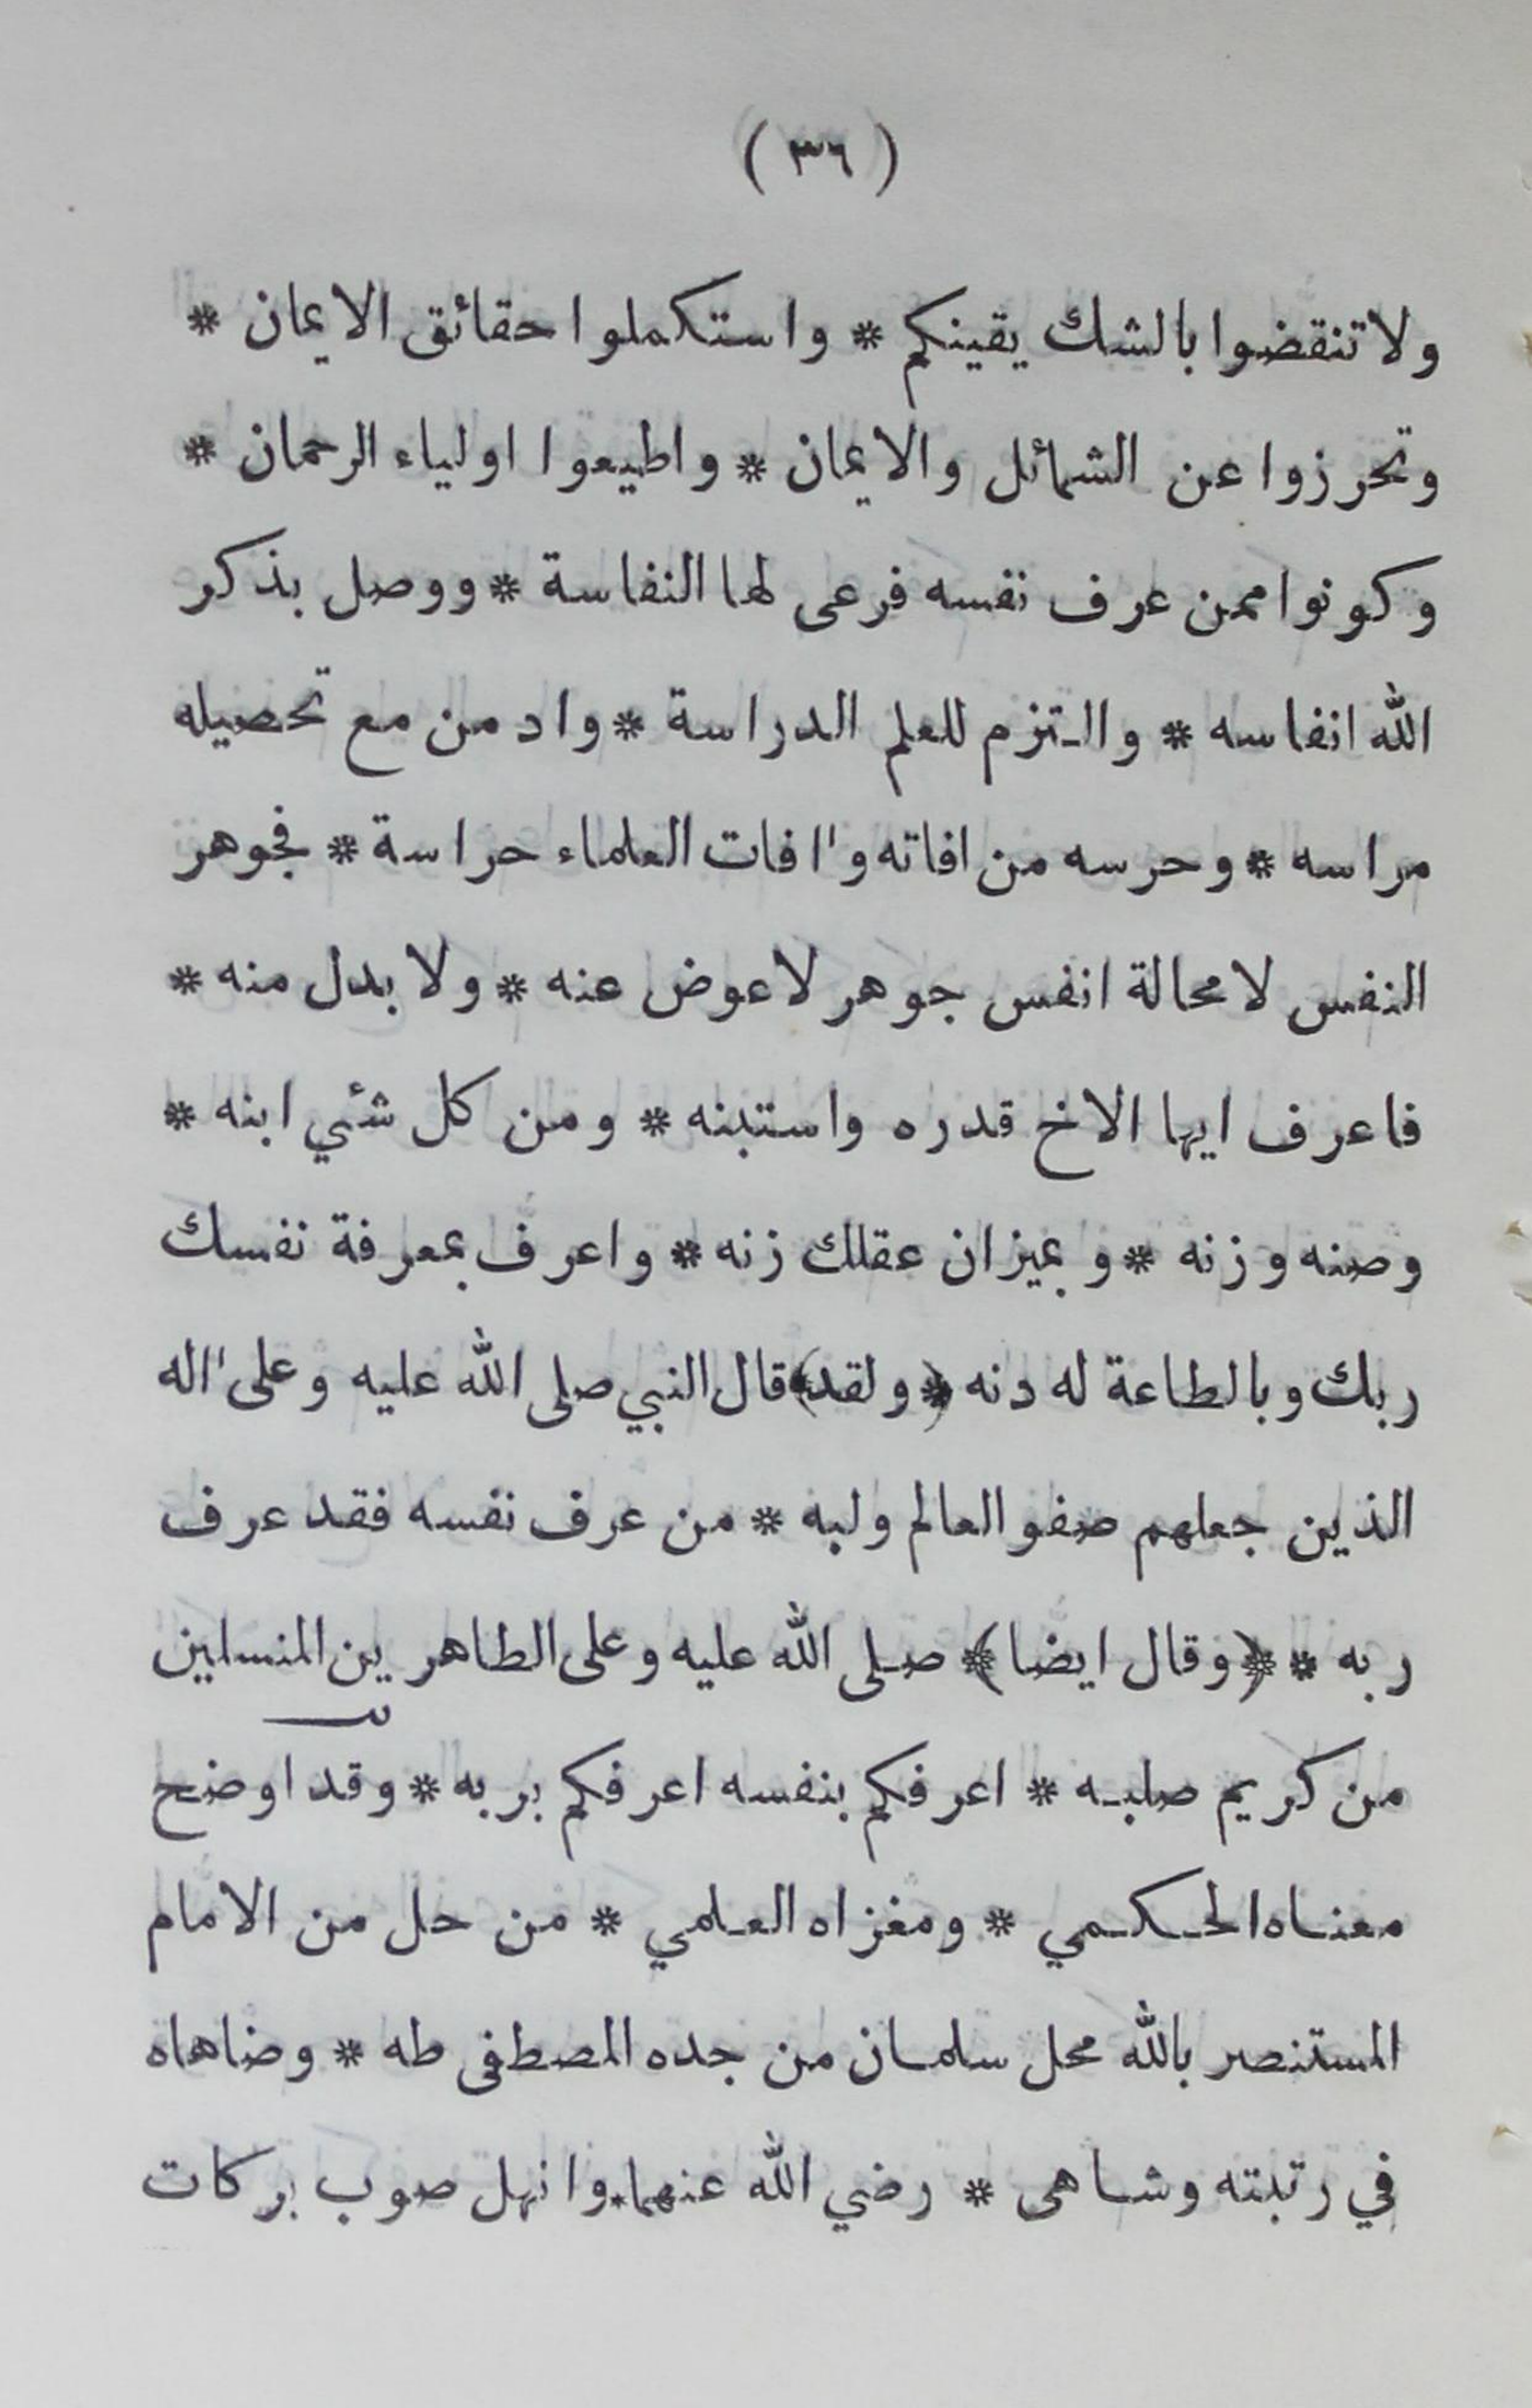 ( ٣٦ )
ولا تنقضوا بالشك يقينكم * واستكملوا حقائق الايمان *
وتحرزوا عن الشمائل والايمان * واطيعوا اولياء الرحمان *
وكونوا ممن عرف نفسه فرعى لها النفاسة * ووصل بذكر
الله انفاسه * والتزم للعلم الدراسة * وادمن مع تحصيله
مراسه * وحرسه من افاته و'افات العلماء حراسة * فجوهر
النفس لا محالة انفس جوهر لا عوض عنه * ولا بدل منه *
فاعرف ايها الاخ قدره واستبنه * ومن كل شئي ابنه *
وصنه وزنه * وبميزان عقلك زنه * واعرف بمعرفة نفسك
ربك وبالطاعة له دنه ﴿ولقد﴾ قال النبي صلى الله عليه وعلى 'اله
الذين جعلهم صفو العالم ولبه * من عرف نفسه فقد عرف
ربه * ﴿وقال ايضا﴾ صلى الله عليه وعلى الطاهرين المنسلين
من كريم صلبه * اعرفكم بنفسه اعرفكم بربه * وقد اوضح
معناه الحكمي * ومغزاه العلمي * من حل من الامام
المستنصر بالله محل سلمان من جده المصطفى طه * وضاهاه
في رتبته وشاهى * رضي الله عنهما * وانهل صوب بركات